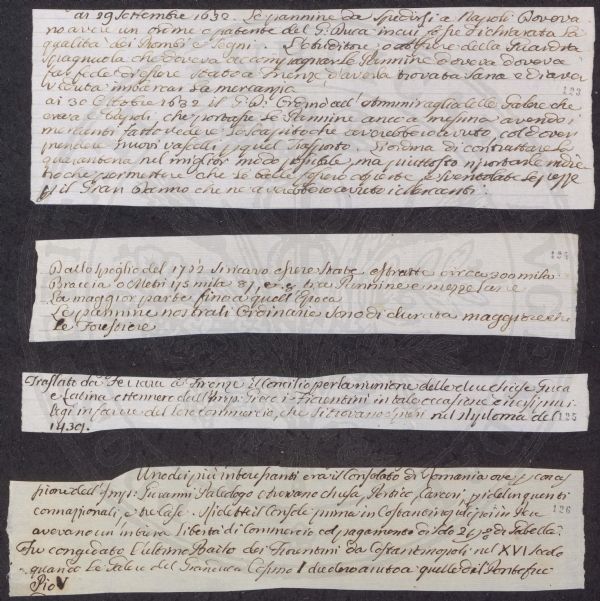 ai 29 Settembre 1632. Le pannine da spedirsi a Napoli dovova
no avere un ordine o patente del G. Duca in cui fosse dichiarata la
qualità dei Piombi e Segni. L'Auditore o altro della Guardia
Spagnuola che doveva accompagnare le Pannine doveva
far fede d'essere stato a Firenze d'averla trovata sana e di aver
veduta imbarcar la mercanzia 123
ai 30 Ottobre 1632 il G. D. ordinò all'Ammiraglio delle Galere che
era a Napoli, che portasse le Pannine anco a Messina avendo i
mercanti fatto vedere lo scapito che avrebbero avuto, col dover
prendere nuovi vaselli per quel trasporto. Si ordina di contrattare la
quarantena nel miglior modo possibile, ma piuttosto riportarle indie
tro che permettere che le balle sieno aperte e sventolate le pezze
per il gran danno che ne avrebbero avuto i Mercanti.
Dallo Spoglio del 1712 si ricava essere state estratte circa 300 mila 124
Braccia o Metri 175 mila tra Pannine e mezze lane
La maggior parte fino a quell'Epoca
Le pannine nostrali Ordinarie sono di durata maggiore che
le Forestiere
Traslato da Ferrara a Firenze il Concilio per la riunione delle due chiese Greca
e Latina ottennero dall'Imp. Greco i Fiorentini in tale occasione
legi in favore del loro commercio, che si trovano espressi nel diploma del 125
1439.
Uno dei più interessanti era il Consolato di Romania ove per conces
sione dell'Imp: Giovanni Paleologo ebbero chiesa, Portico, Carceri, per i delinquenti
connazionali, e tre case. Risiedette il Console prima in Costantinopoli poi in Pera
avevano un'intiera libertà di Commercio col pagamento di solo 2 p% di Gabella. 126
Fu congedato l'ultimo Bailo dei Fiorentini da Costantinopoli nel XVI Secolo
quando le Galere del Granduca Cosimo I diedero aiuto a quelle del Pontefice
Pio V